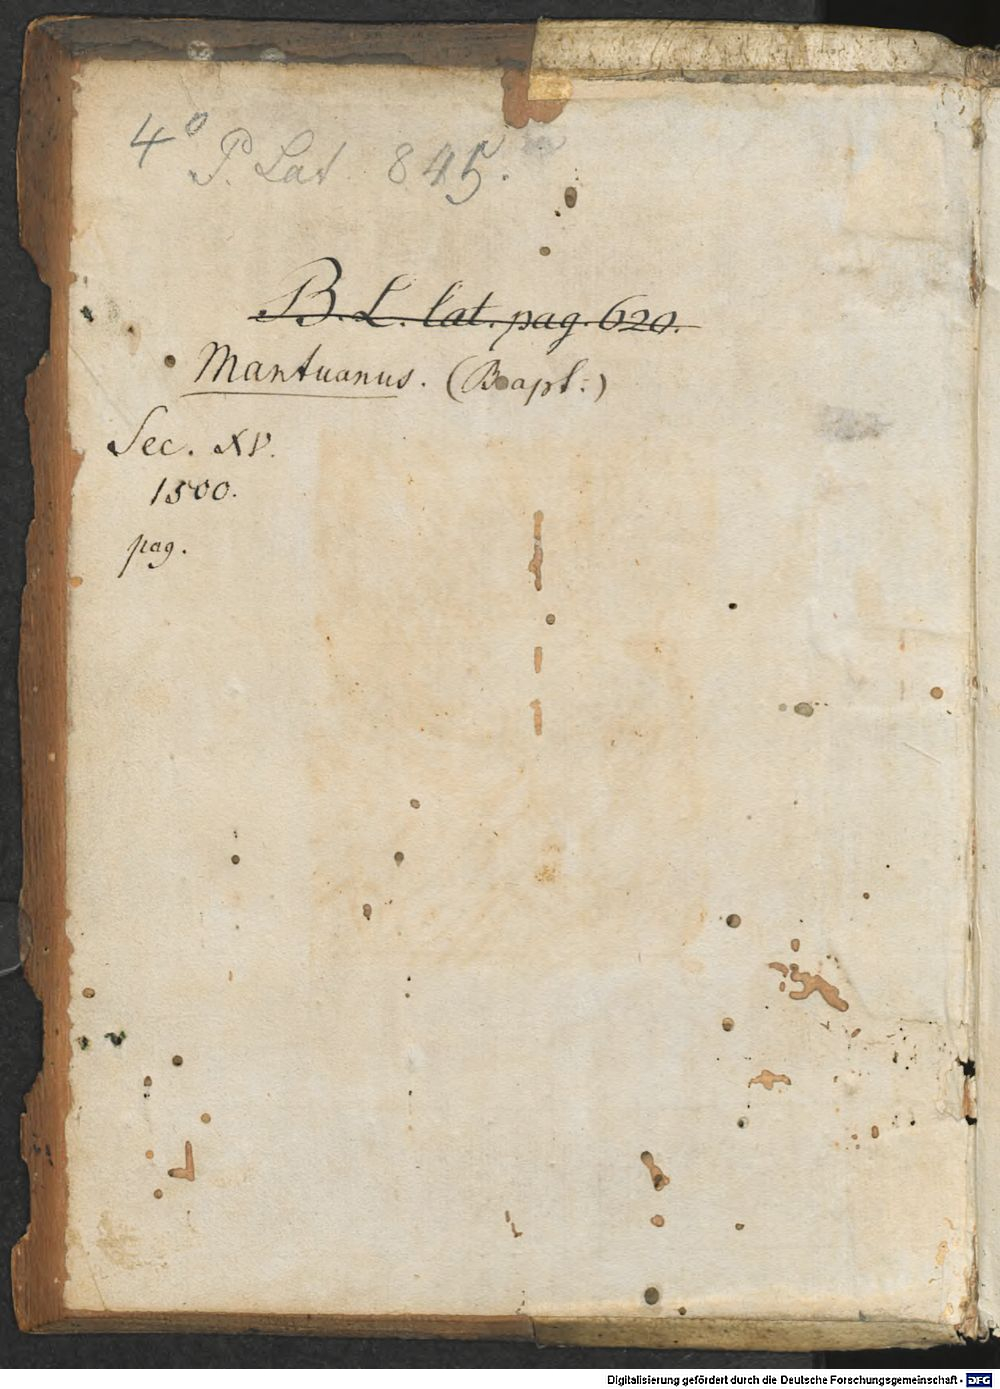 4° P. Lat. 845.
B. L. lat. pag. 620.
Mantuanus. (Bapt:)
Sec. XV.
1500.
pag.
Digitalisierung gefördert durch die Deutsche Forschungsgemeinschaft - DFG